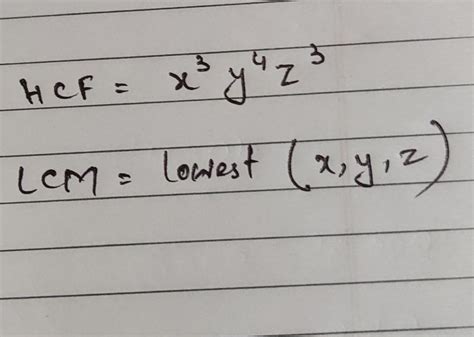 HCF = x³ y⁴ z³
LCM = lowest (x, y, z)